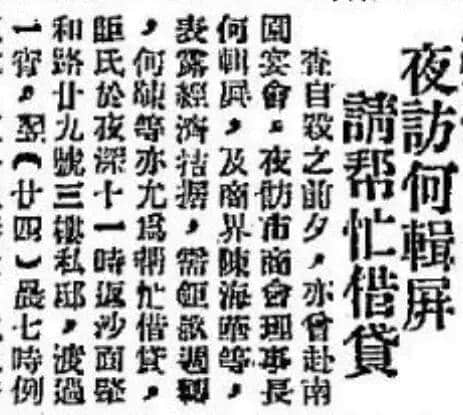 夜訪何輯屏
請帮忙借貸
查自殺之前夕,亦曾赴南
園宴會。夜訪市商會理事長
何輯屏,及商界陳海等,
表露經濟拮据,需鉅款週轉
,何陳等亦允爲帮忙借貸,
距氏於夜深十一時返沙面肇
和路廿九號三樓私邸,渡過
一宵。翌(廿四)晨七時例